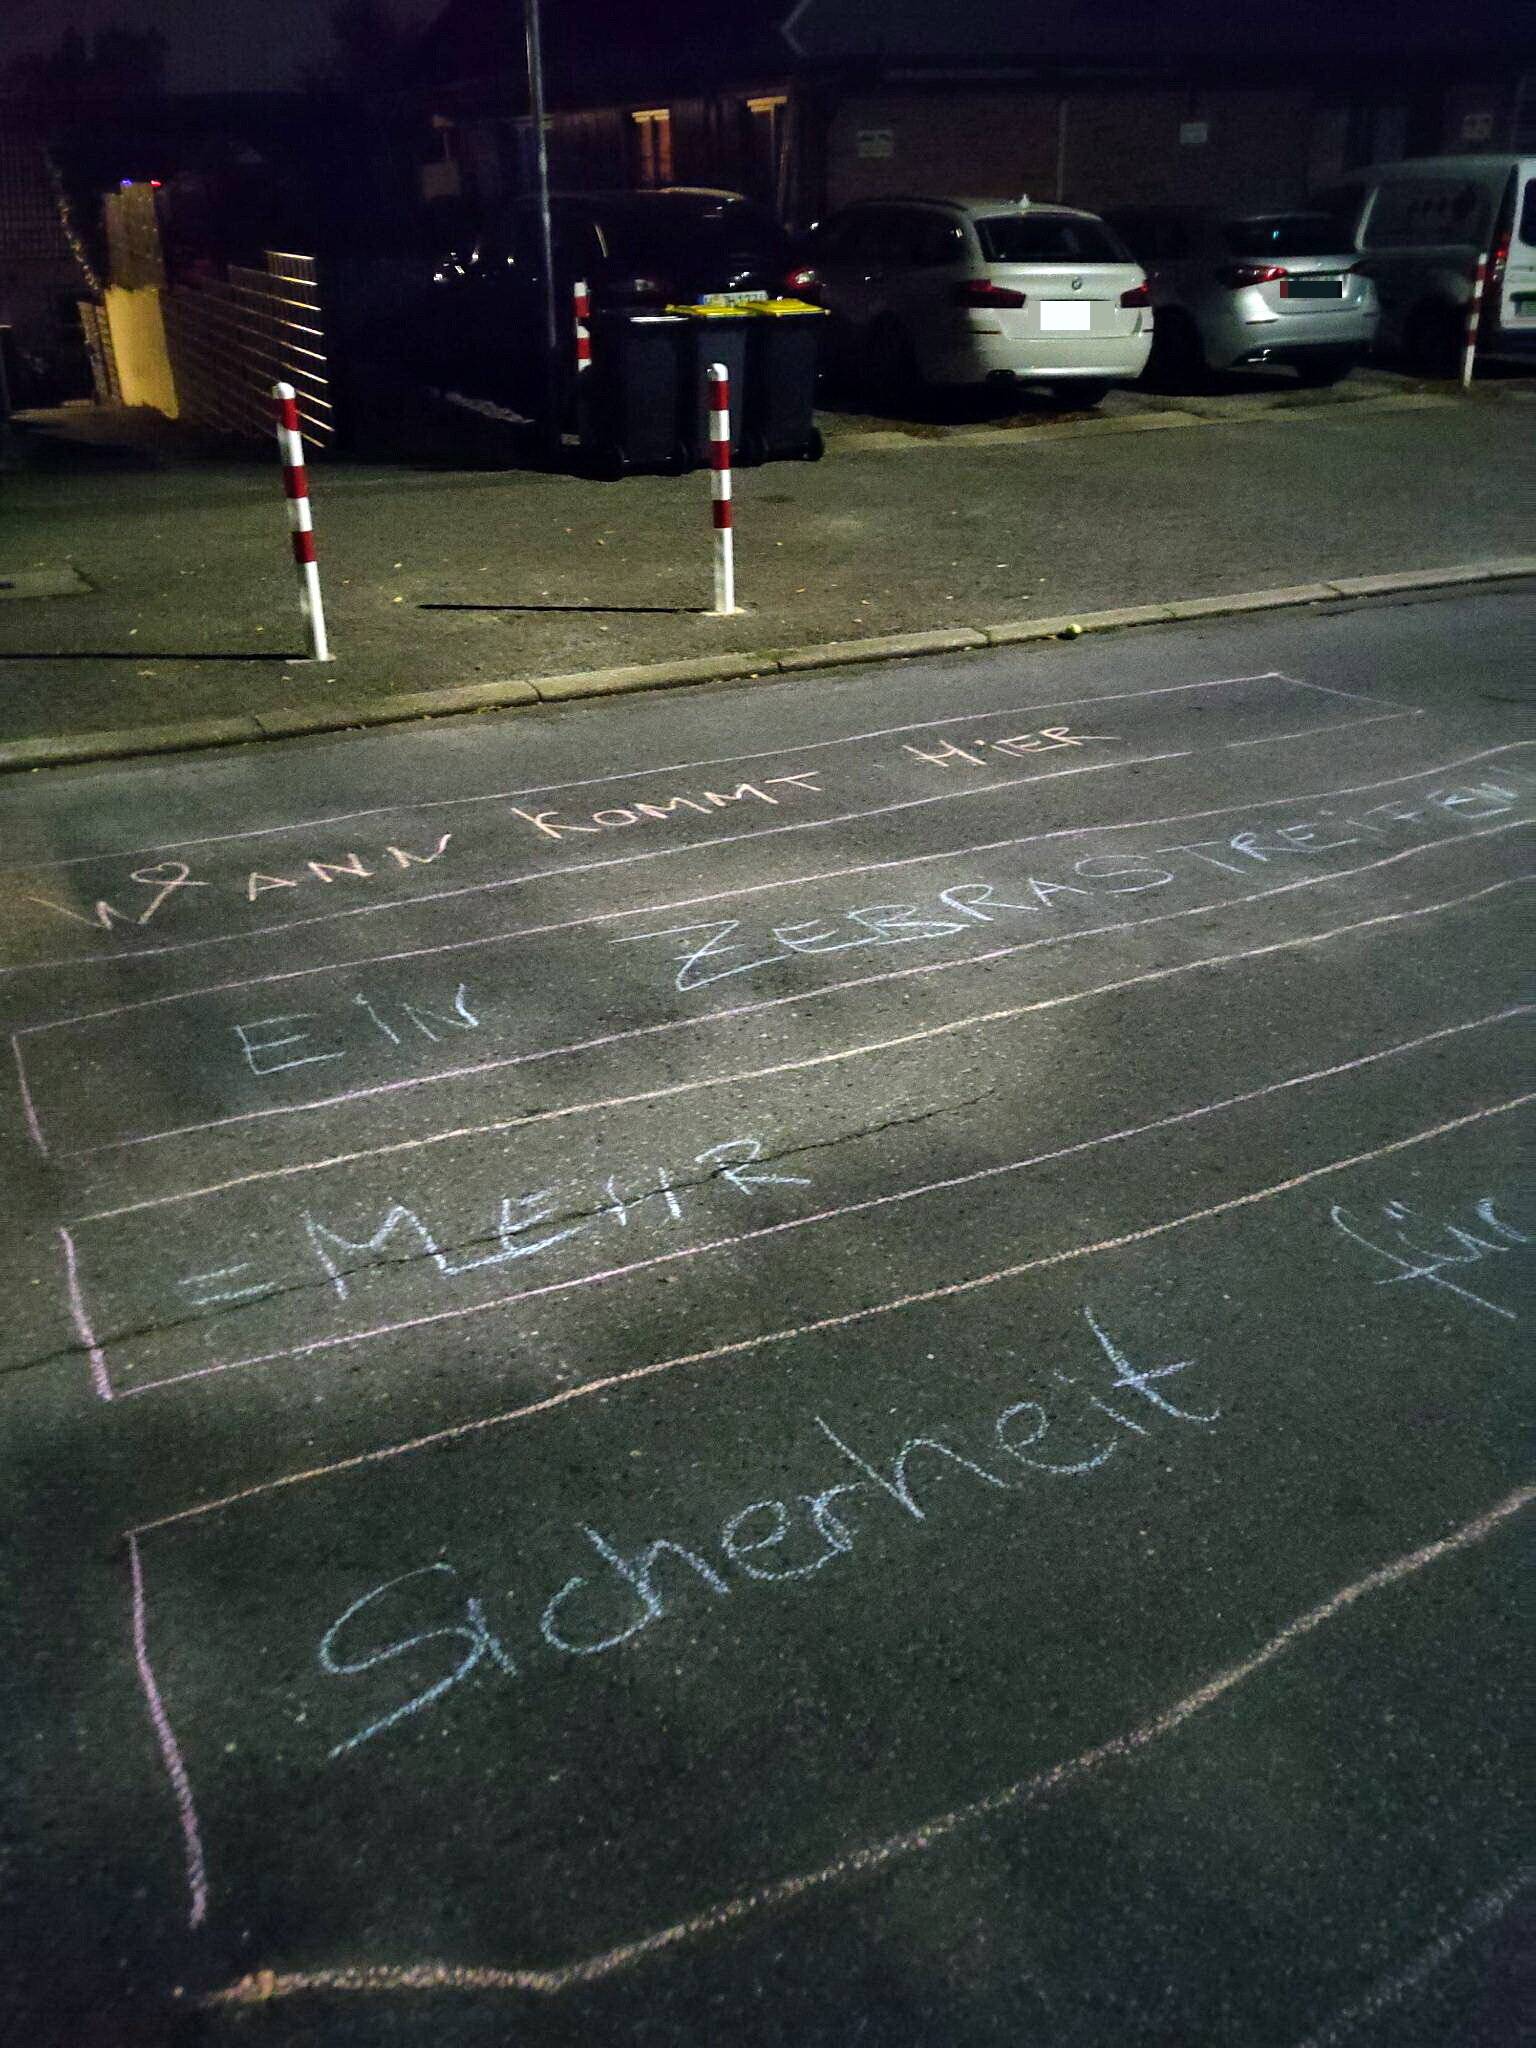 WANN KOMMT HIER
EIN ZEBRASTREIFEN
= MEHR
Sicherheit für